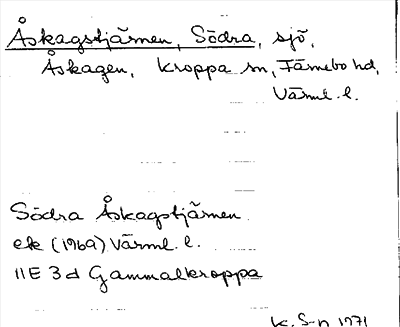 Åskagstjärnen, Södra, sjö,
Åskagen, Kroppa sn, Färnebo hd,
Värml. l.
Södra Åskagstjärnen
ek (1969) Värml. l.
11E 3d Gammalkroppa
K. S-n 1971